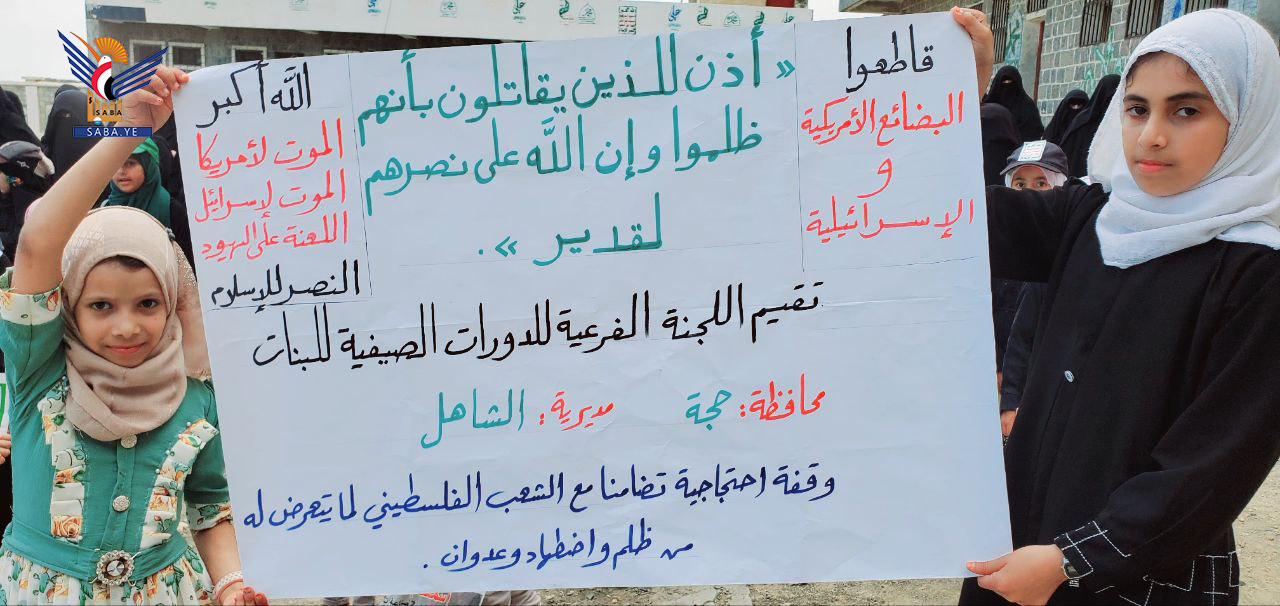 قاطعوا
البضائع الأمريكية
و
الإسرائيلية
« أذن للذين يقاتلون بأنهم
ظلموا وإن اللّه على نصرهم
لقدير ».
اللّه أكبر
الموت لأمريكا
الموت لإسرائيل
اللعنة على اليهود
النصر للإسلام
تقيم اللجنة الفرعية للدورات الصيفية للبنات
محافظة: حجة مديرية: الشاهل
وقفة احتجاجية تضامنا مع الشعب الفلسطيني لما يتعرض له
من ظلم واضطهاد وعدوان.
سبأ
SABA
SABA.YE